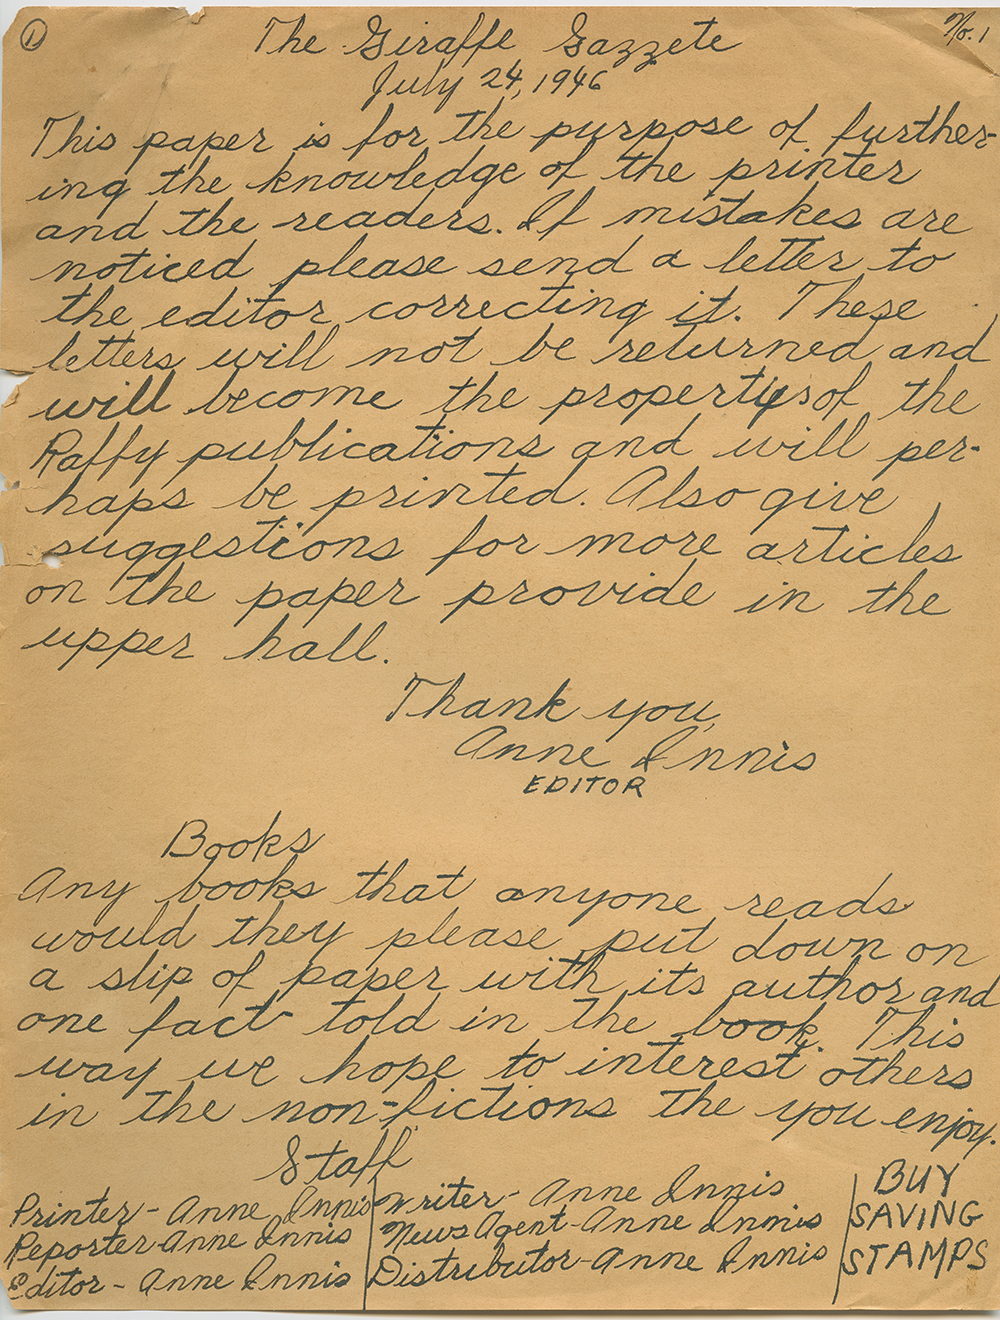 ① The Giraffe Gazzete No. 1
July 24, 1946
This paper is for the purpose of further-
ing the knowledge of the printer
and the readers. If mistakes are
noticed please send a letter to
the editor correcting it. These
letters will not be returned and
will become the propertys of the
Raffy publications and will per-
haps be printed. Also give
suggestions for more articles
on the paper provide in the
upper hall.
Thank you,
Anne Innis
EDITOR
Books
Any books that anyone reads
would they please put down on
a slip of paper with its author and
one fact told in the book. This
way we hope to interest others
in the non-fictions the you enjoy.
Staff
Printer - Anne Innis
Reporter - Anne Innis
Editor - Anne Innis
Writer - Anne Innis
News Agent - Anne Innis
Distributor - Anne Innis
BUY
SAVING
STAMPS